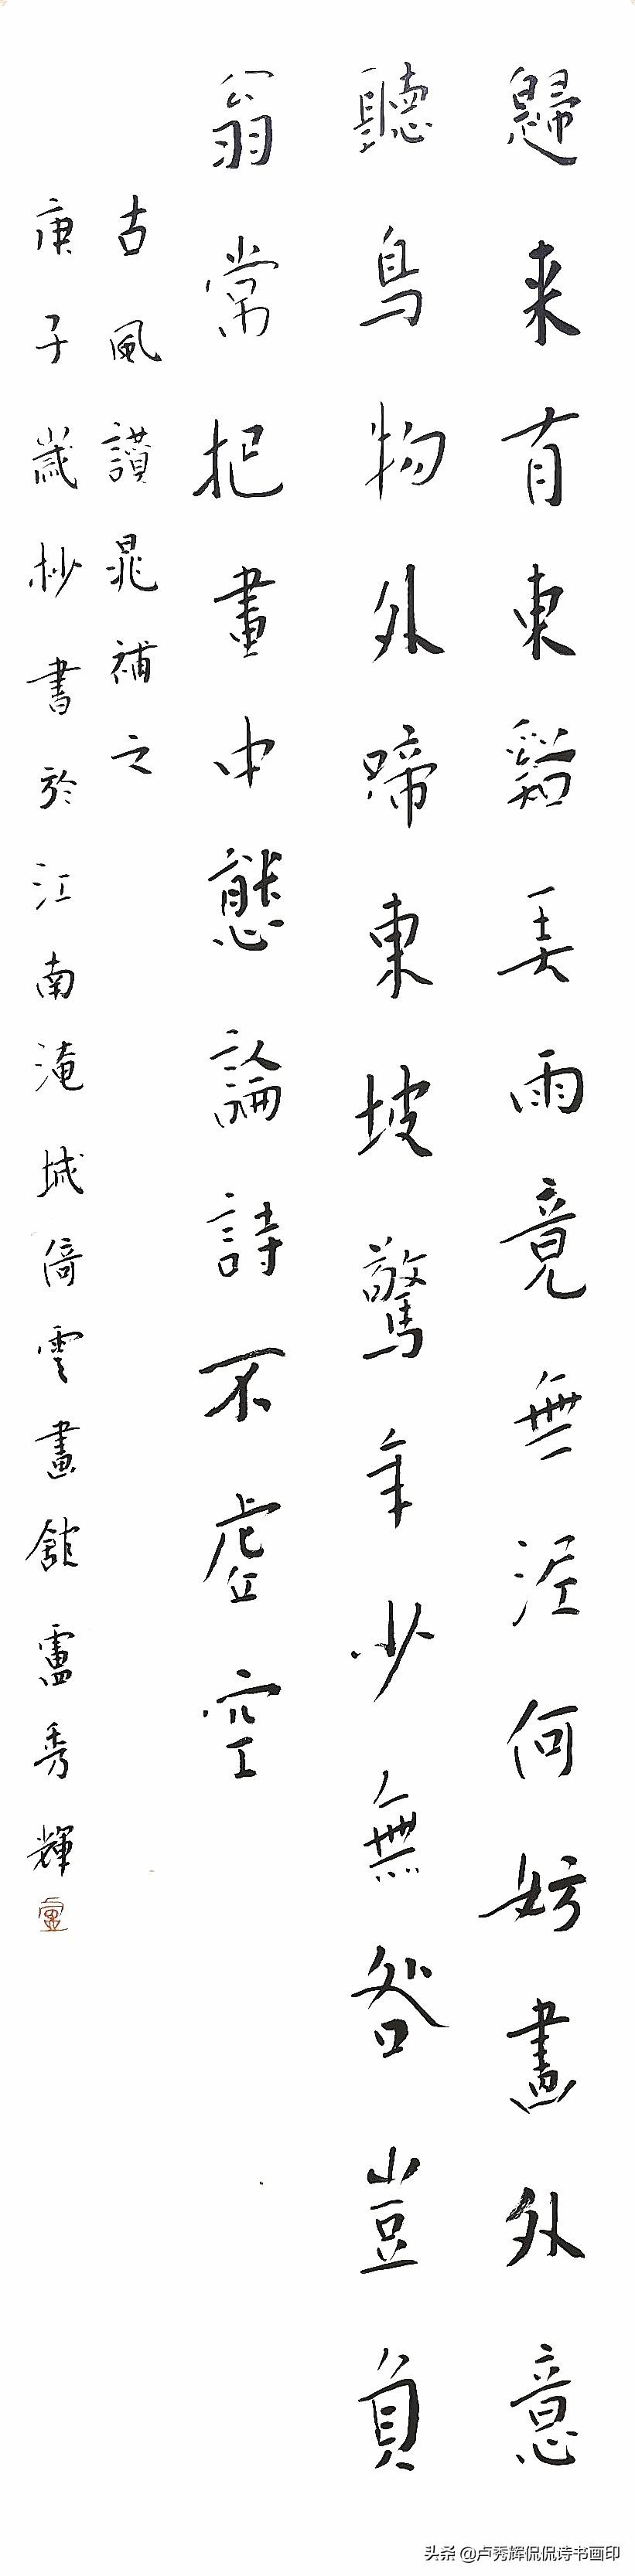 歸来有東谿美雨竟無泥何妨畫外意
聽鳥物外啼東坡驚年少無咎豈負
翁常把畫中態論詩不虛空
古風讚晁補之
庚子歲杪書於江南淹城倚雲畫館盧秀輝
盧
头条 @卢秀辉侃侃诗书画印